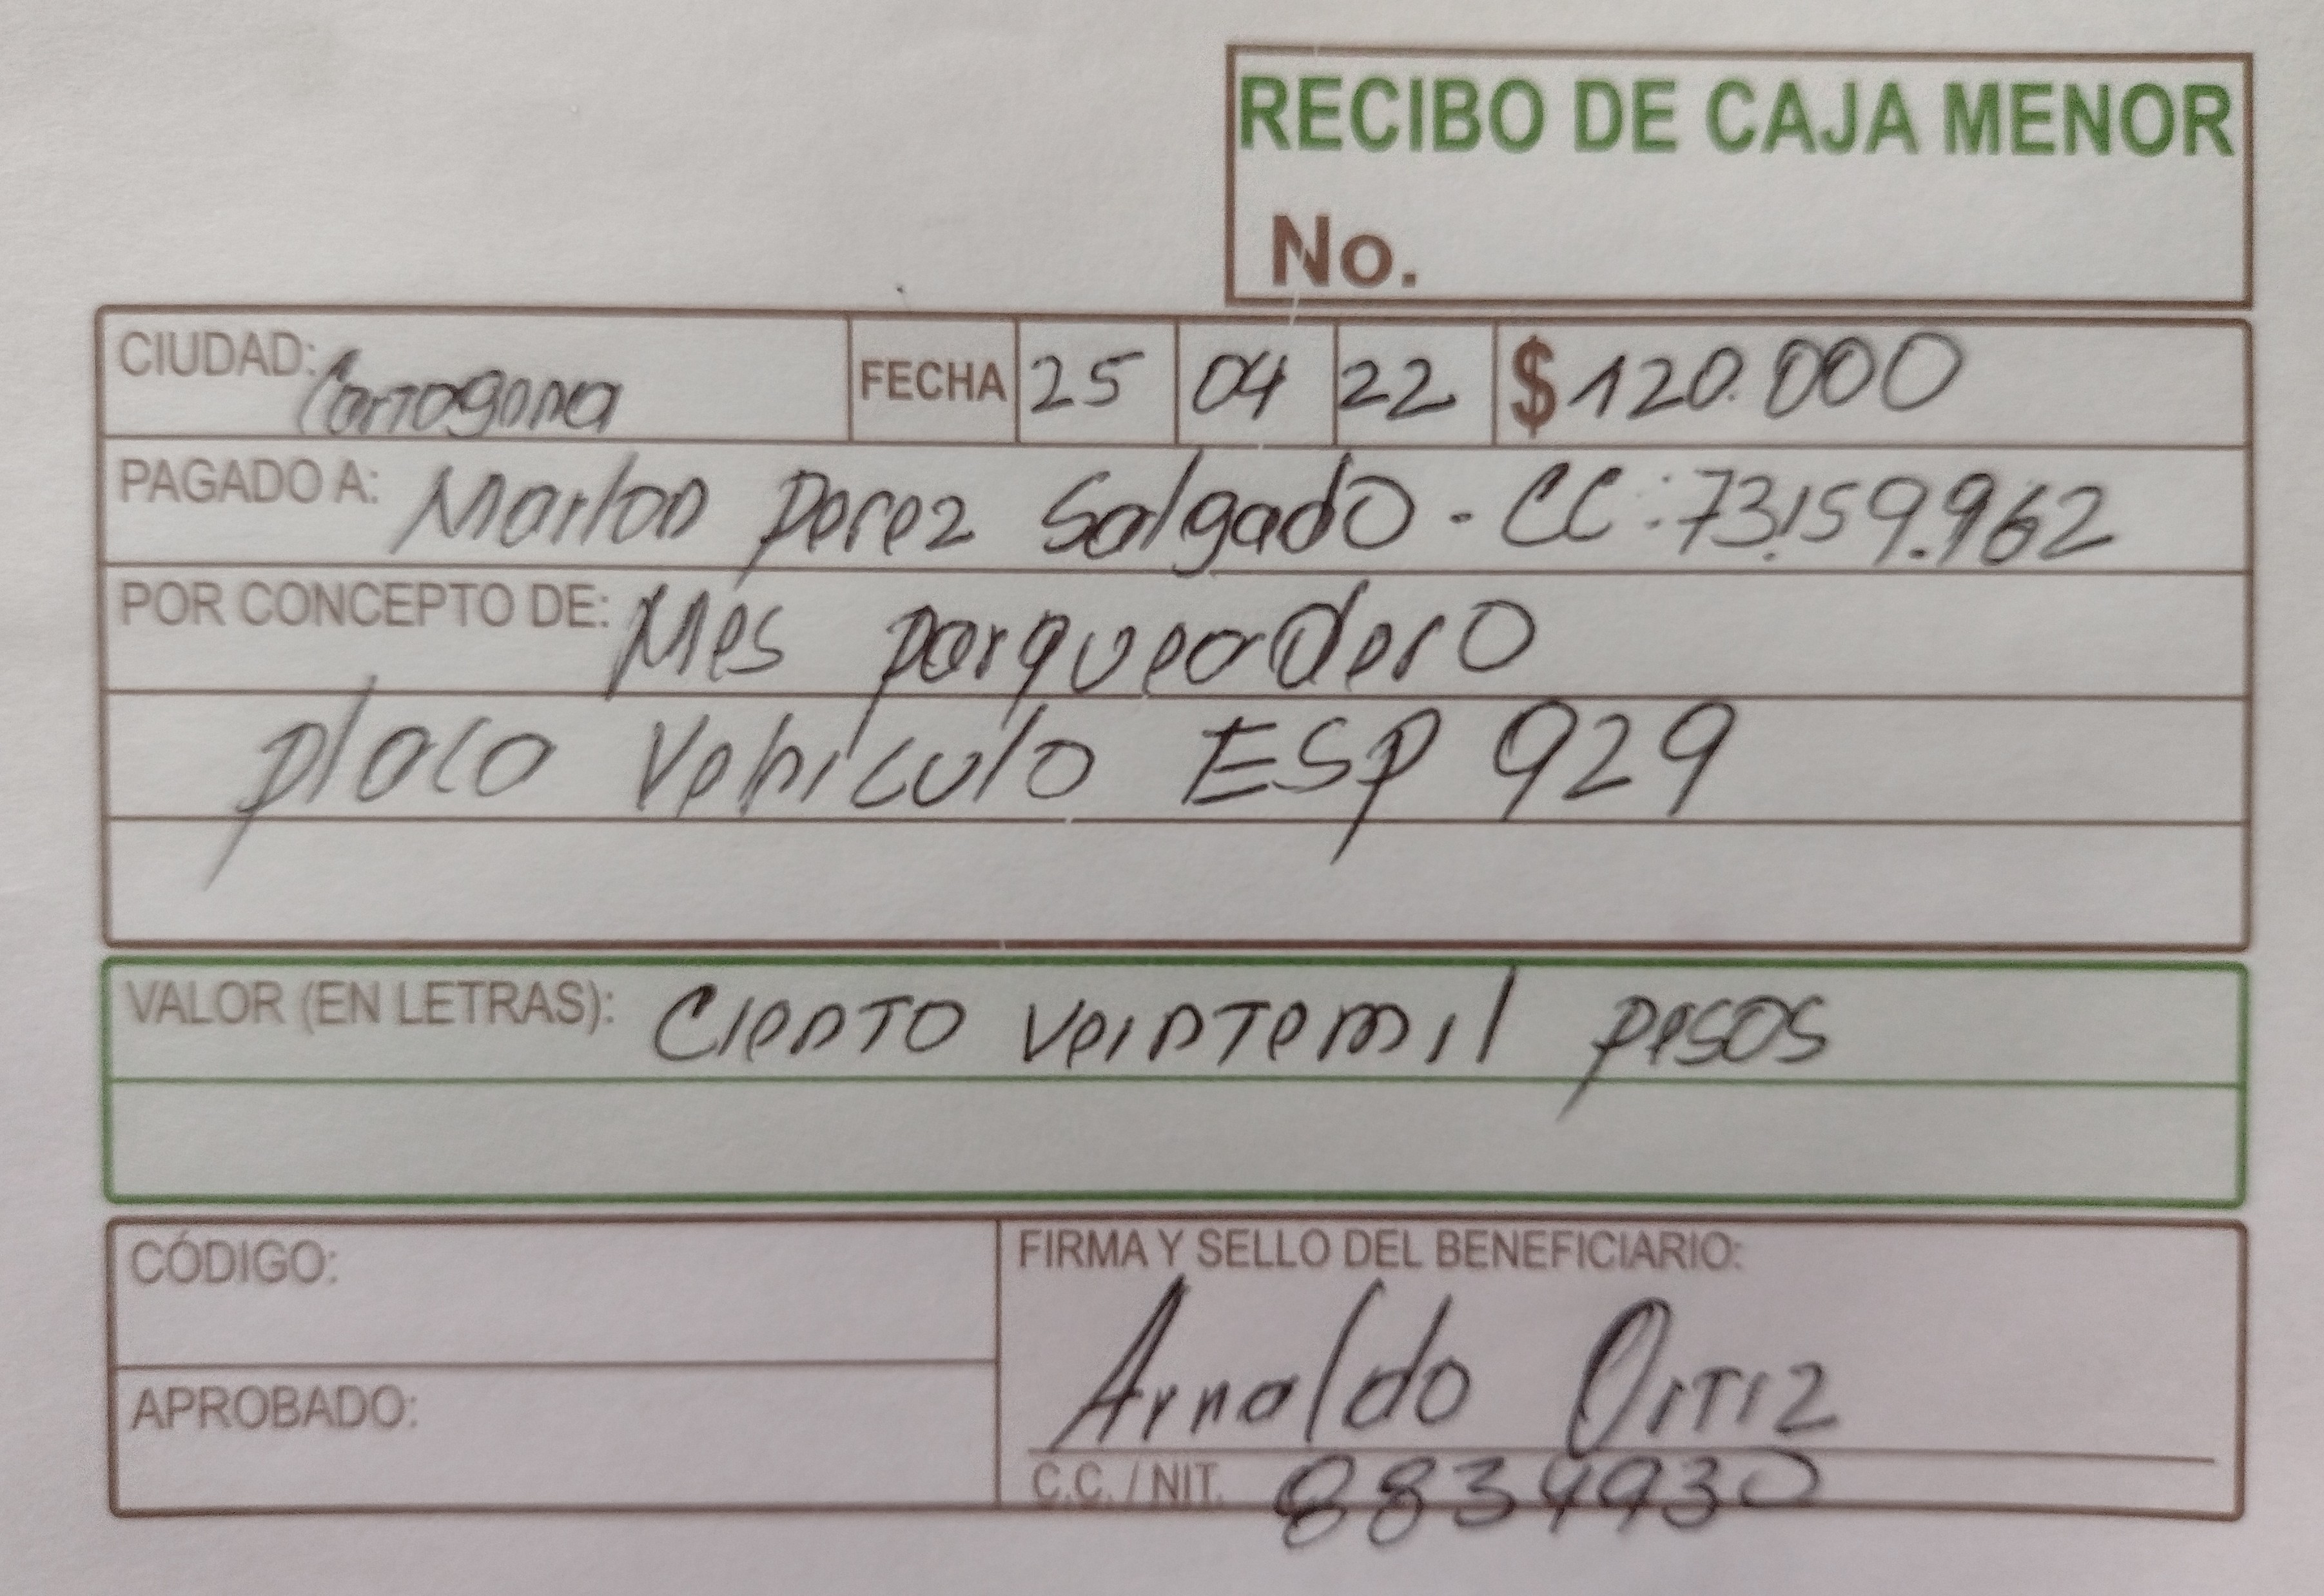 RECIBO DE CAJA MENOR
No.
CIUDAD: Cartagena FECHA 25 04 22 $ 120.000
PAGADO A: Marlon Perez Salgado - CC: 73.159.962
POR CONCEPTO DE: Mes parqueadero
placa Vehiculo ESP 929
VALOR (EN LETRAS): Ciento veintemil pesos
CÓDIGO:
APROBADO:
FIRMA Y SELLO DEL BENEFICIARIO:
Arnaldo Ortiz
C.C. / NIT. 8834930